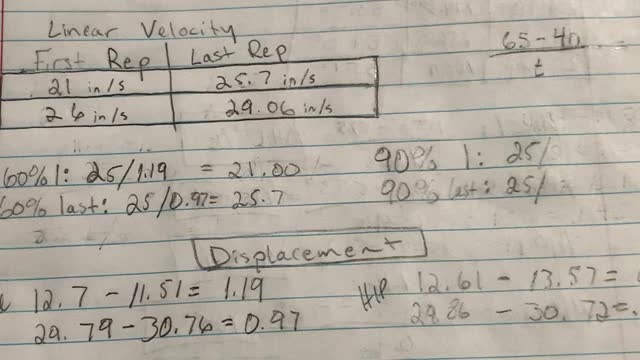 Linear Velocity
First Rep Last Rep
21 in/s 25.7 in/s
26 in/s 29.06 in/s
65-40
t
60% 1: 25/1.19 = 21.00
60% last: 25/0.97= 25.7
90% 1: 25/
90% last: 25/
Displacement
12.7 - 11.51 = 1.19
29.79 - 30.76 = 0.97
HIP 12.61 - 13.57 =
29.86 - 30.72 = .